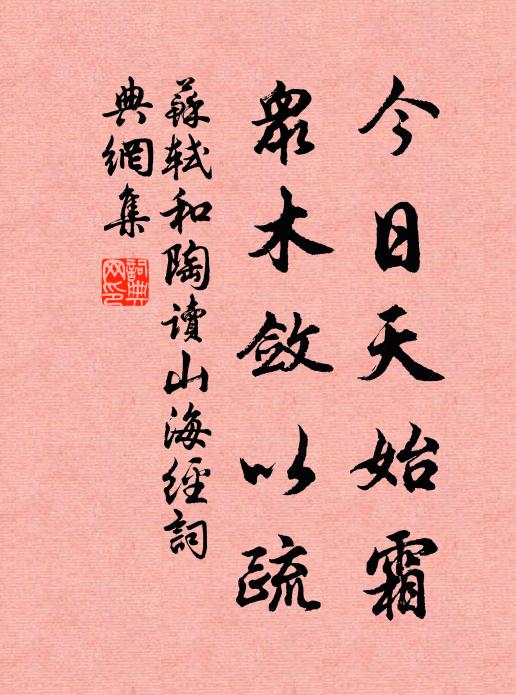 今日天始霜
眾木斂以疏
蘇軾和陶讀山海經詞
典網集
詞典網印